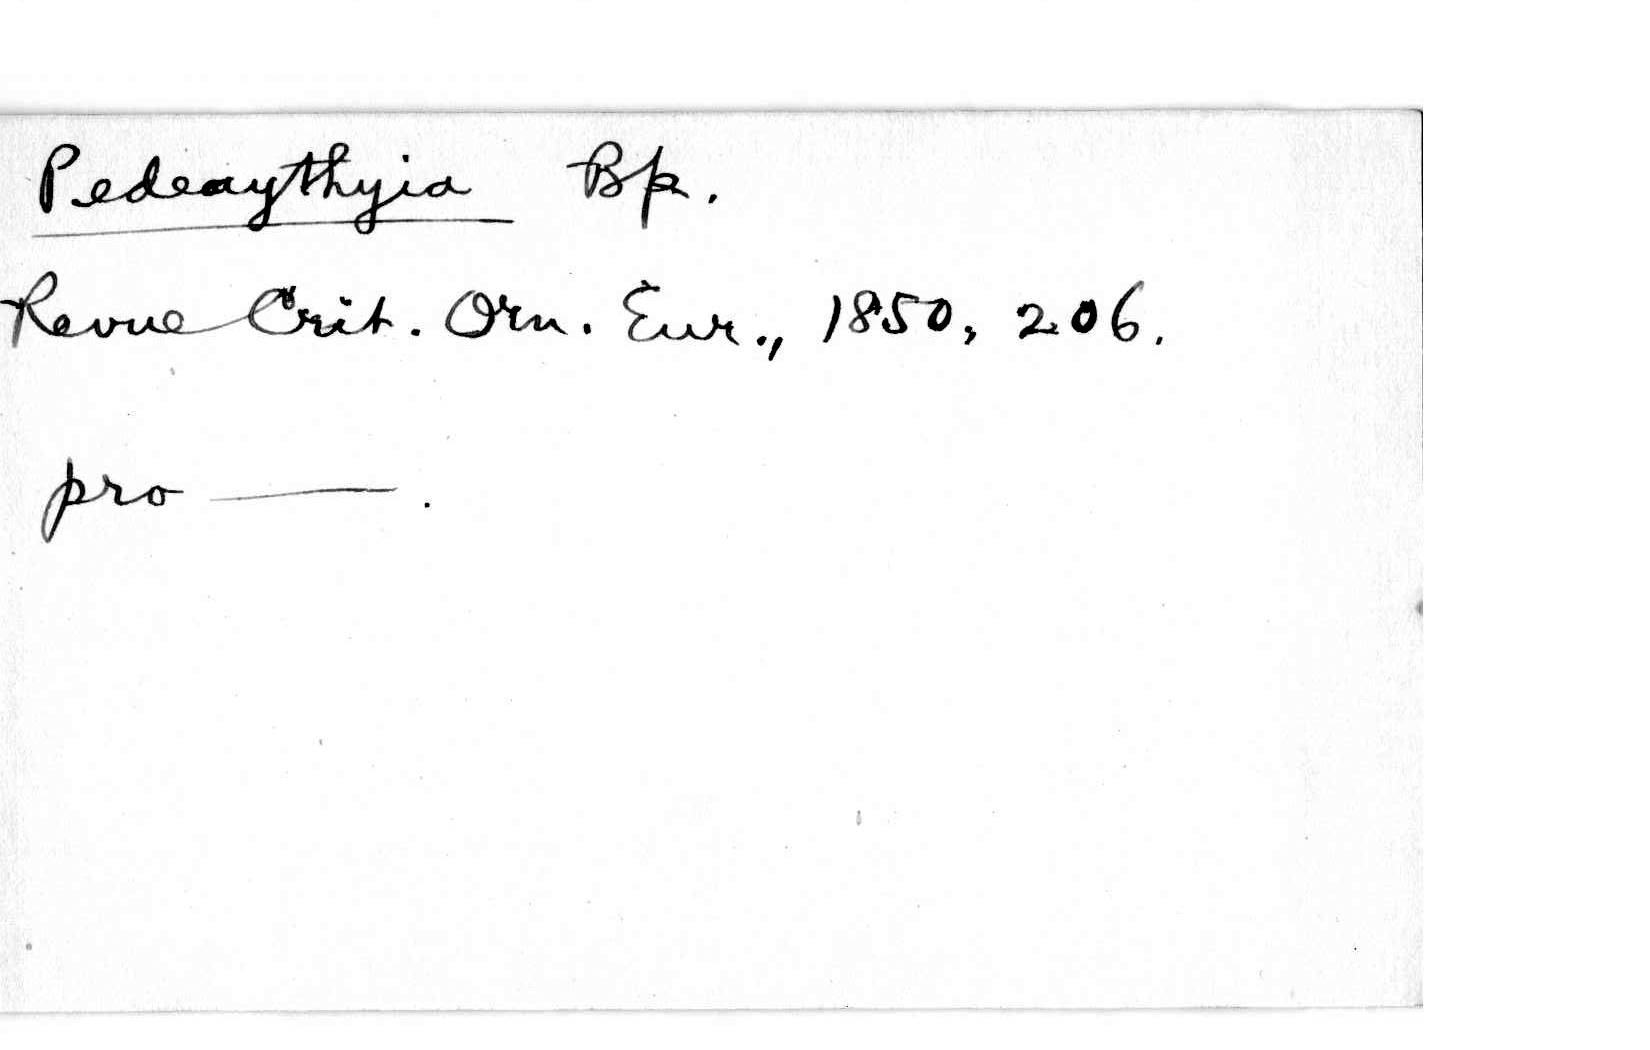 Pedeaythyia Bp.
Revue Crit. Orn. Eur., 1850, 206.
pro ——.